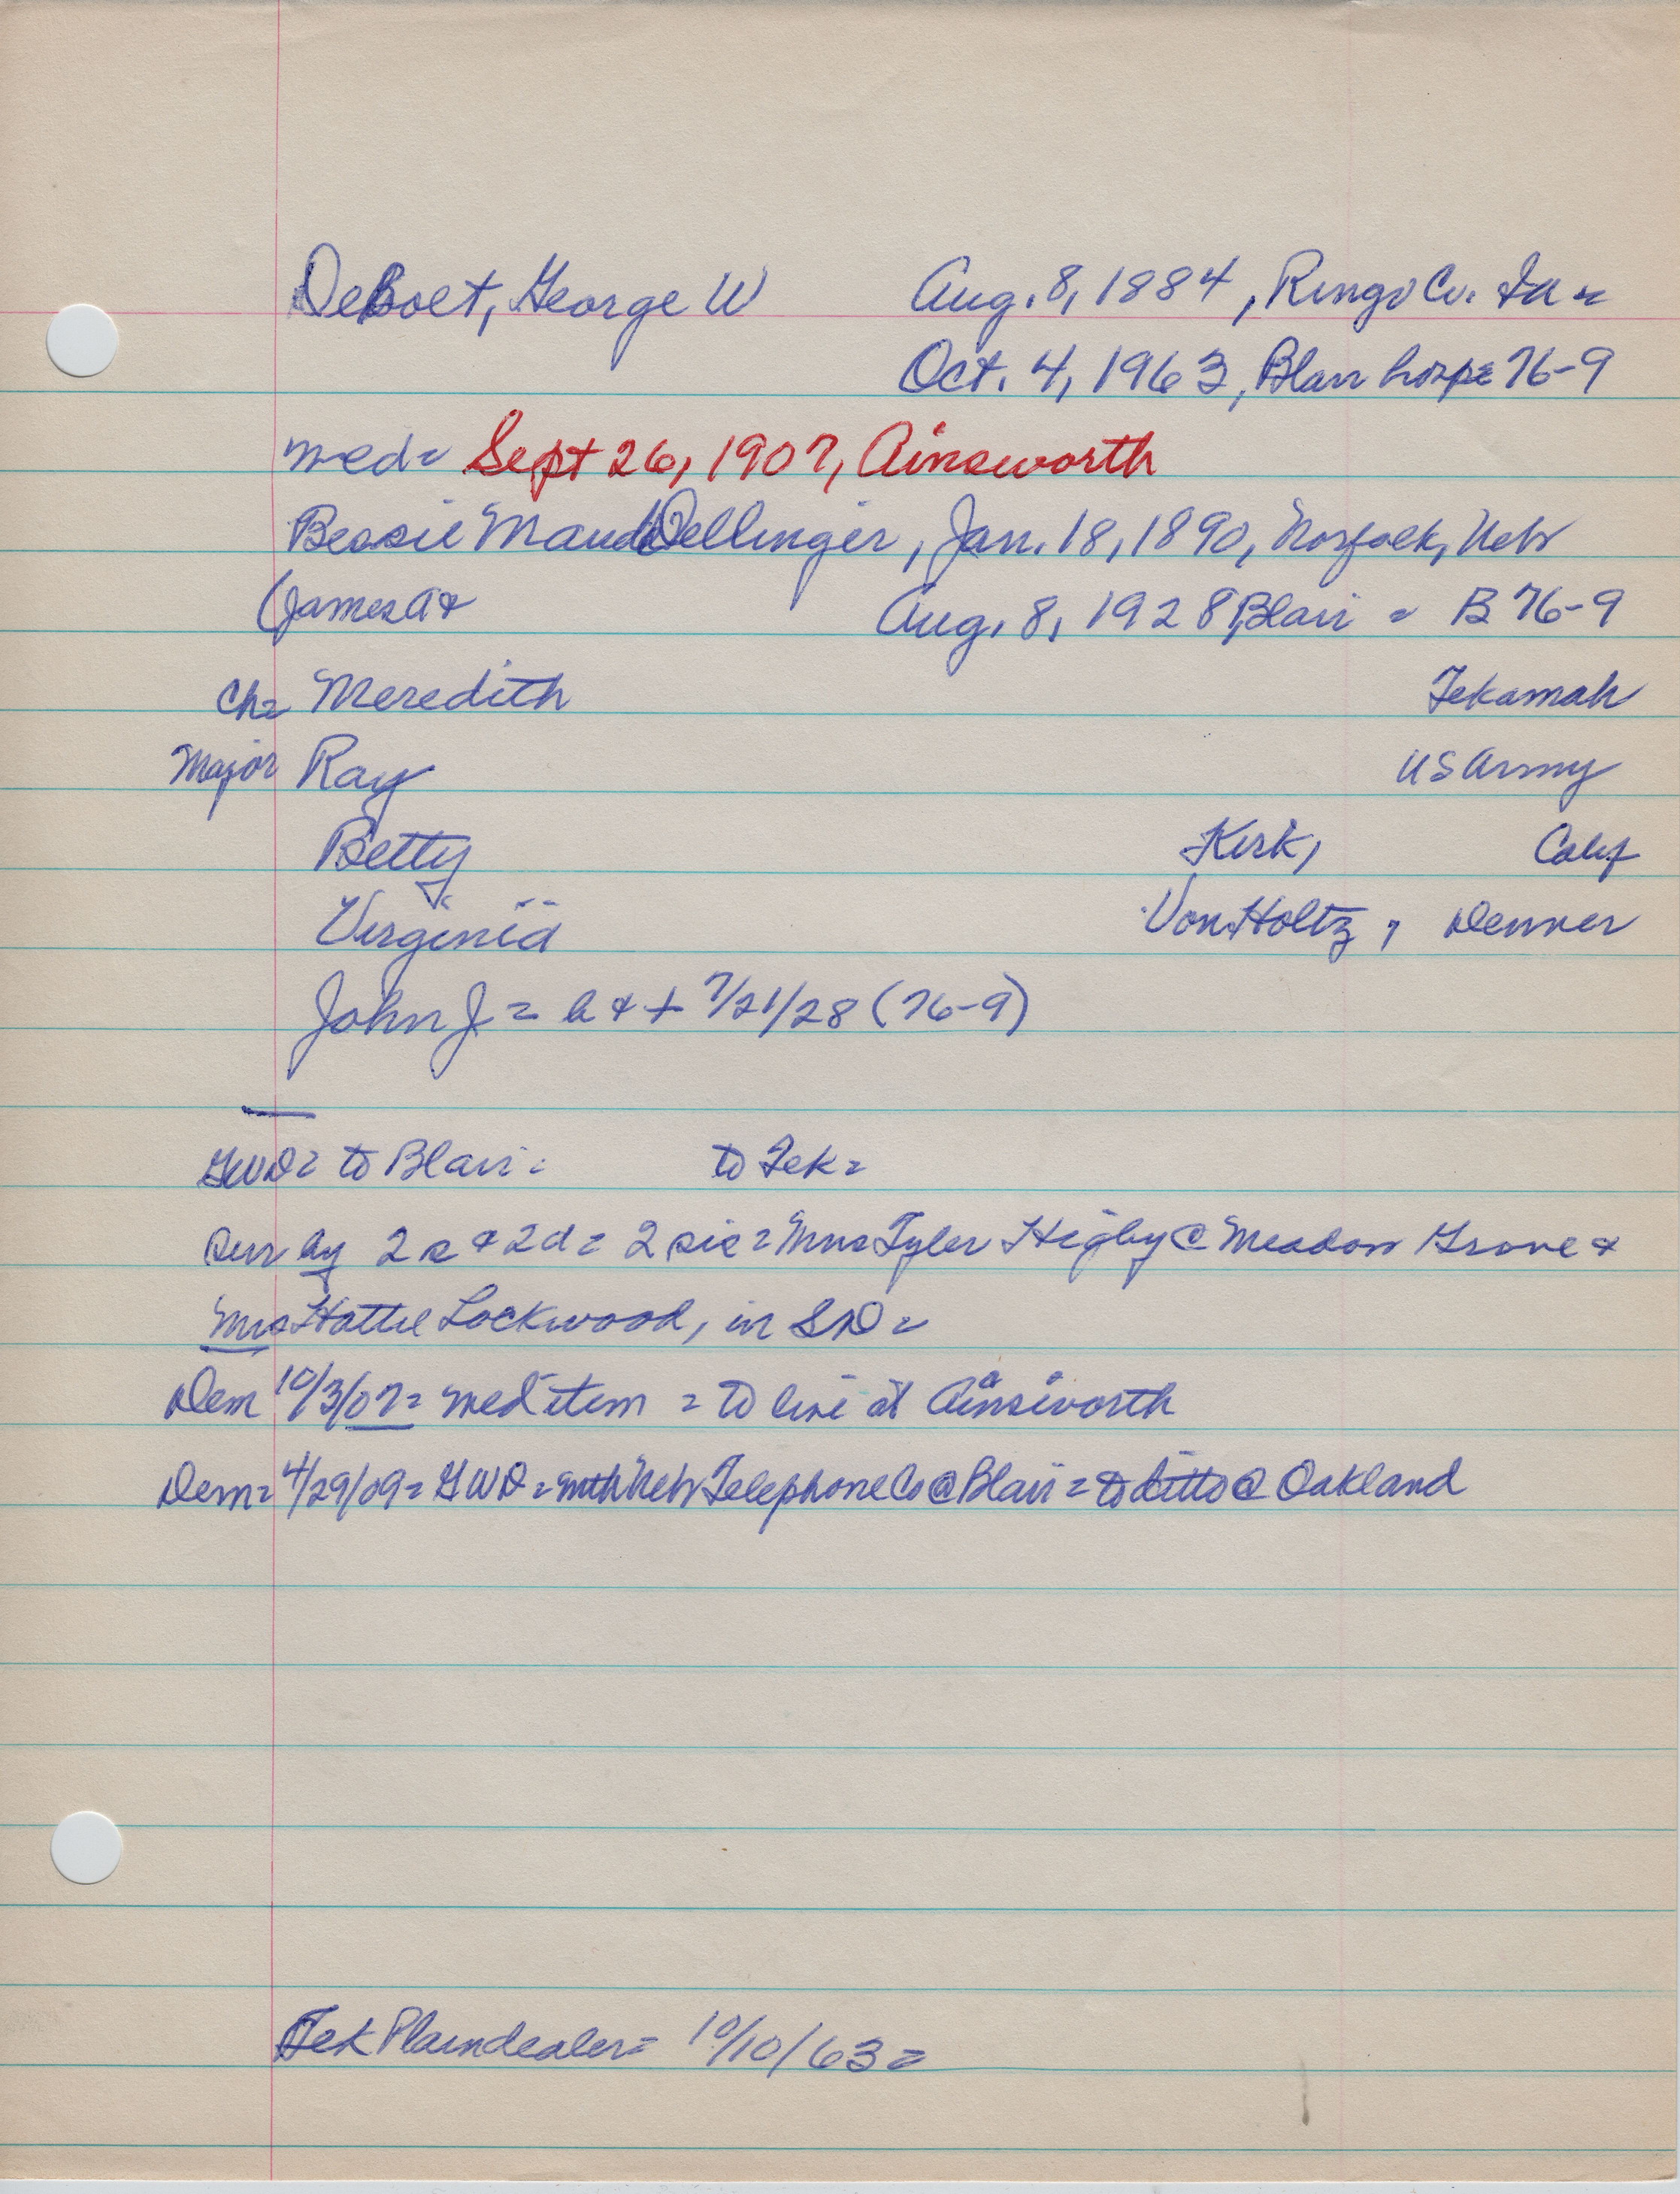 DeBoet, George W Aug. 8, 1884, Ringo Co. Ia =
Oct. 4, 1963, Blair hosp = 76-9
med = Sept 26, 1907, Ainsworth
Bessie Maude Dellinger, Jan. 18, 1890, Norfolk, Nebr
(James A & Aug. 8, 1928 Blair = B 76-9
Ch = Meredith Tekamah
Major Ray US Army
Betty Kirk, Calif
Virginia VonHoltz, Denver
John J = b & + 7/21/28 (76-9)
GWD = to Blair = to Tek =
Sur by 2 s & 2 d = 2 sis = Mrs Tyler Higby @ Meadow Grove &
Mrs Hattie Lockwood, in SD =
Dem 10/3/07 = med item = to live at Ainsworth
Dem = 4/29/09 = GWD = with Nebr Telephone Co @ Blair = to ditto @ Oakland
Tek Plaindealer = 10/10/63 =